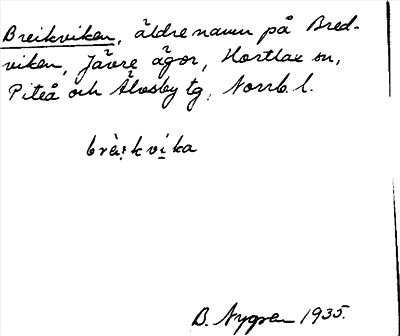 Breikviken, äldre namn på Bred-
viken, Jävre ägor, Hortlax sn,
Piteå och Älvsby tg, Norrb. l.
brèi̯kvi̱ka
B. Nygren 1935.